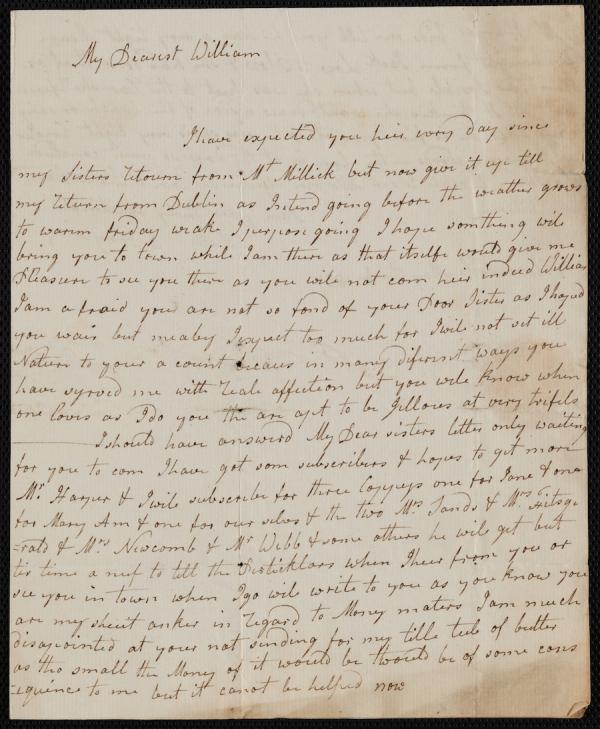 My Dearest William
I have expected you heir very day since
my Sisters retourn from Mt Millick but now give it up till
my return from Dublin as Intend going before the weather grows
to warim friday weake I purpose going I hope somthing wile
bring you to town while I am there as that itselfe would give me
Pleasure to see you ther as you wile not com heir indeed William
I am a fraid you are not so fond of your Poor Sister as I hoped
you wair but meaby I expect too much for I wile not set ill
Nature to your a count becaus in many difirent ways you
have syrved me with reale affection but you wile know when
one loves as I do you the are apt to be Jelloues at very trifels
I should have answerd My Dear sisters letter only waiting
for you to com I have got som subscribers & hopes to get more
Mr Harper & I wile subscribe for three Coppeys one for Jane & one
for Mary Am & one for our selves & the two Mrs Sands & Mrs Fitsge
=rald & Mrs Newcomb & Mr Webb & some others he wile get but
tis time a nuf to till the Pirticklars when I heer from you or
see you in town when I go wile write to you as you know you
are my sheet anker in regard to Money maters I am much
disapointed at your not sending for my little tub of butter
as tho small the Money of it would be twould be of some cons
=equince to me but it canot be helped now